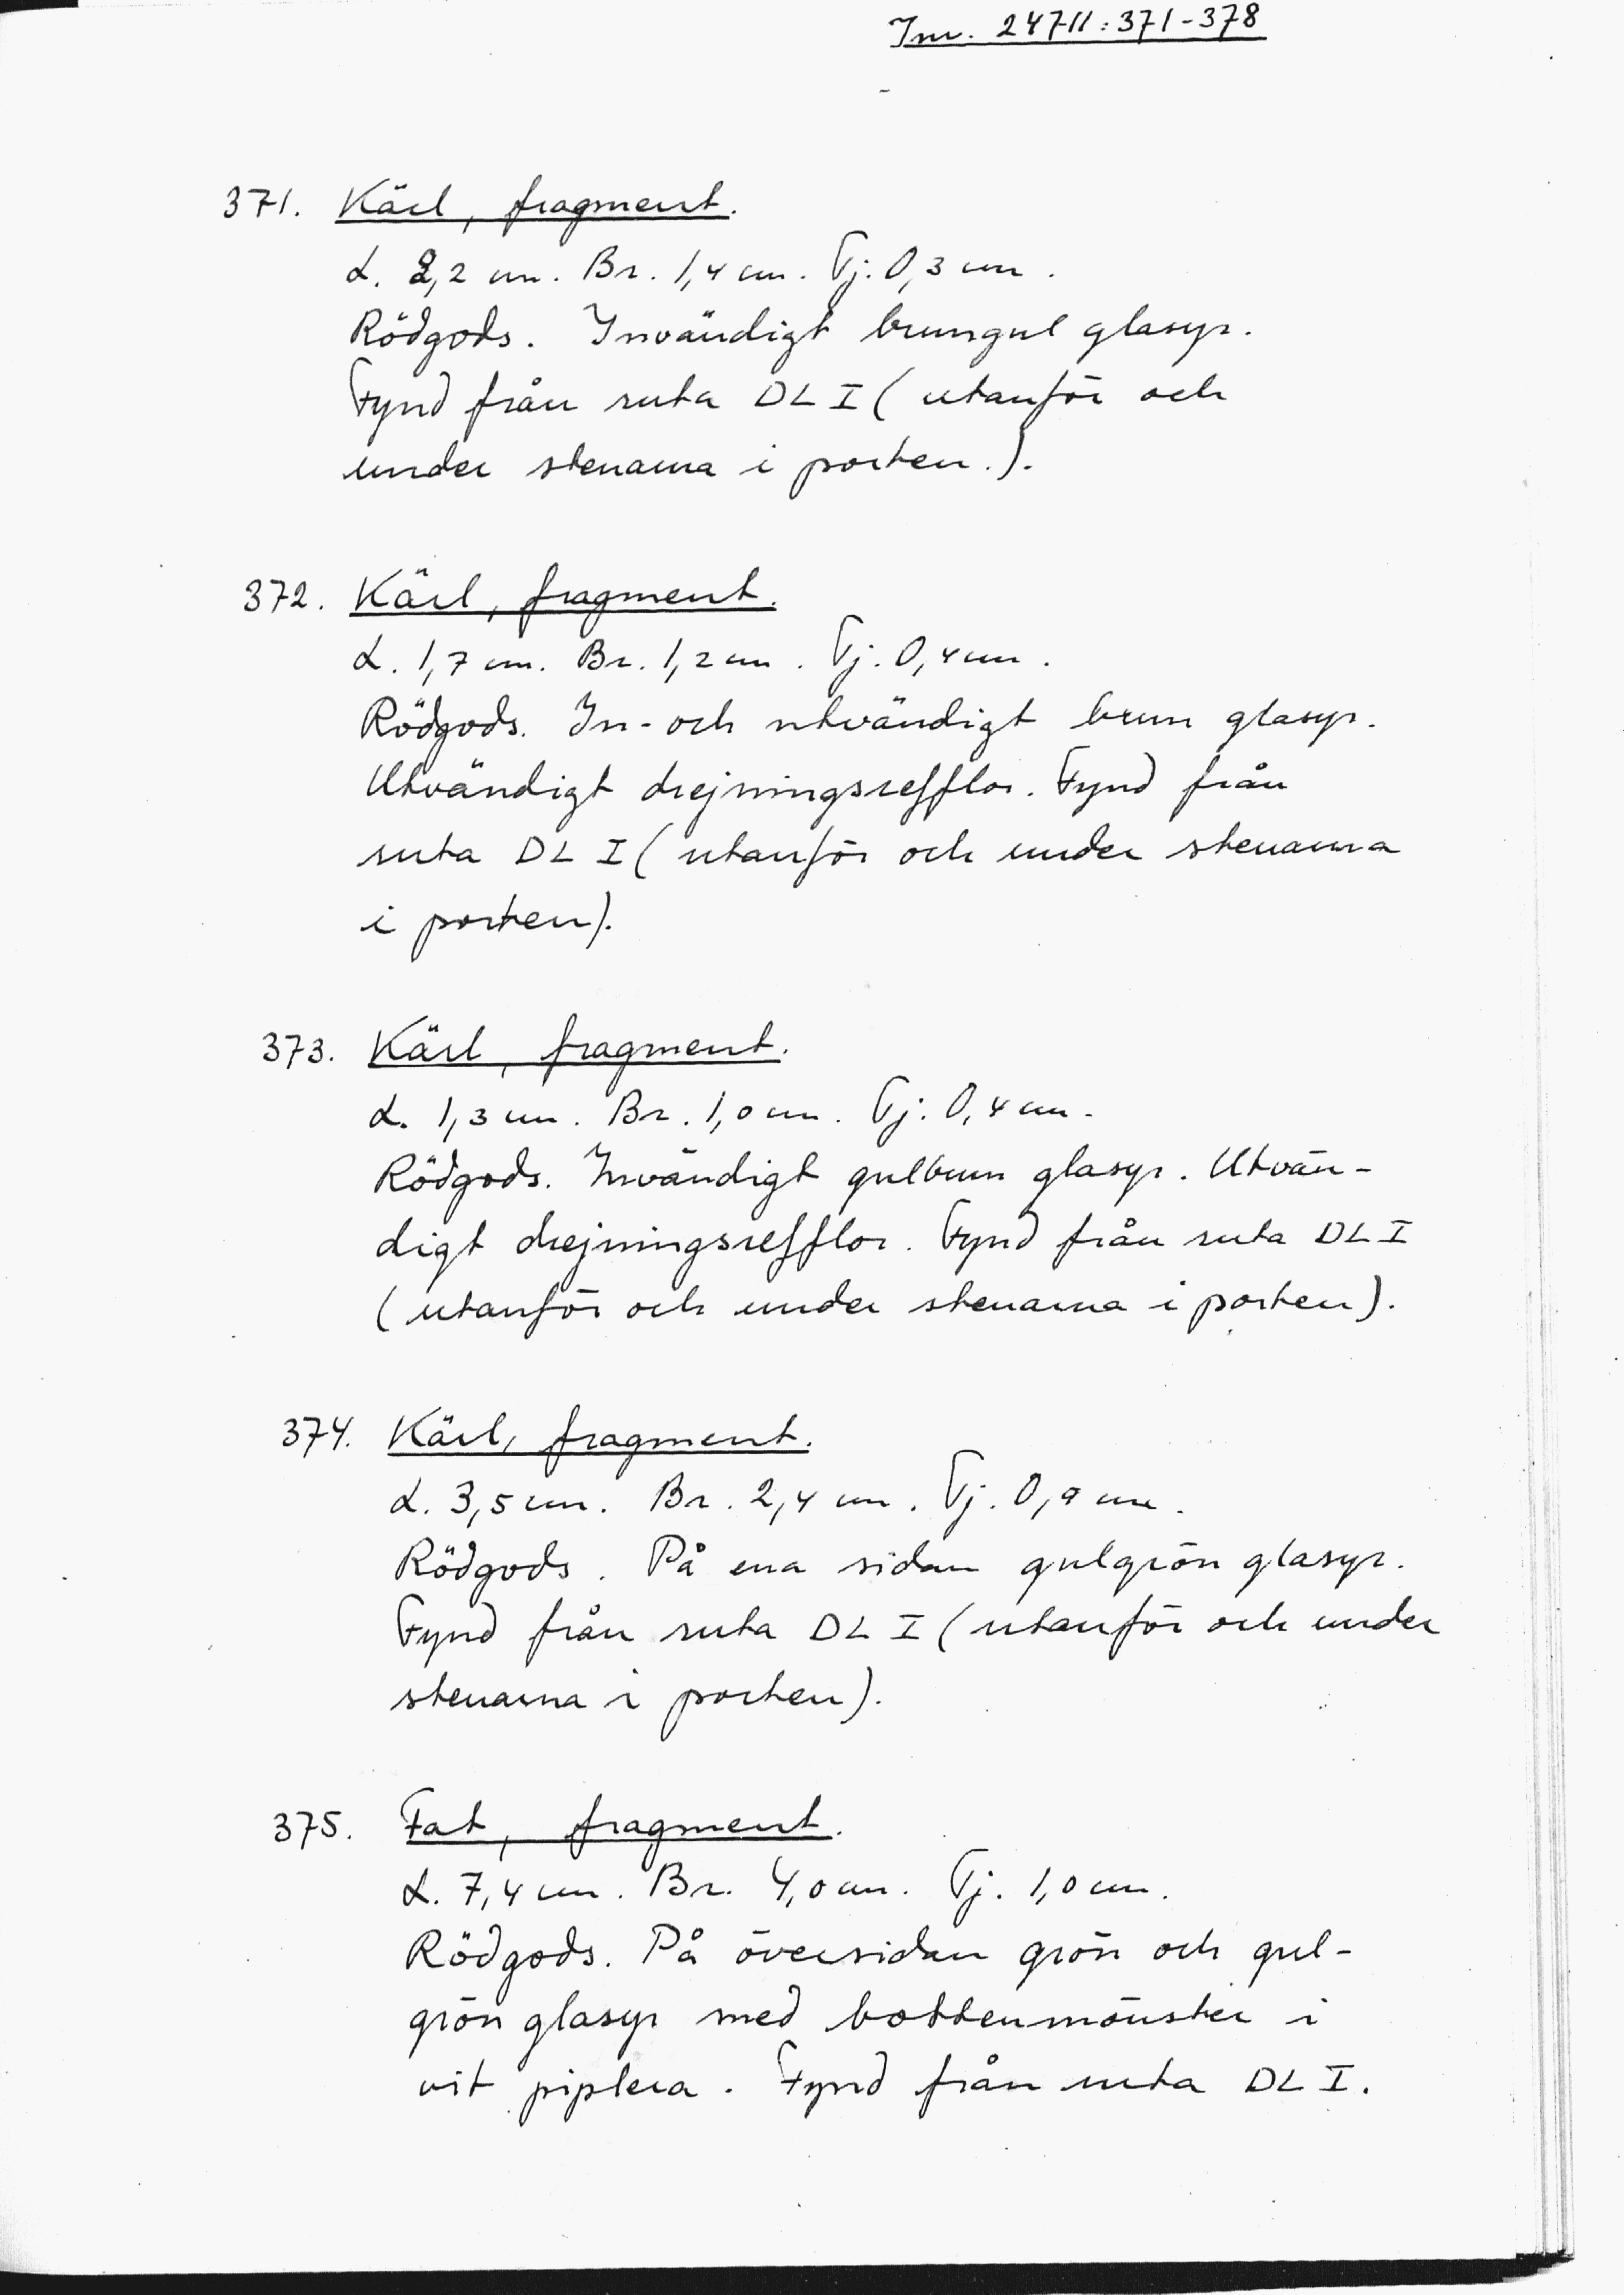 Inv. 24711:371-378
371. Kärl, fragment.
L. 2,2 cm. Br. 1,4 cm. Tj. 0,3 cm.
Rödgods. Invändigt brungul glasyr.
Fynd från ruta DL I (utanför och
under stenarna i porten.).
372. Kärl, fragment.
L. 1,7 cm. Br. 1,2 cm. Tj. 0,4 cm.
Rödgods. In- och utvändigt brun glasyr.
Utvändigt drejningsrefflor. Fynd från
ruta DL I (utanför och under stenarna
i porten).
373. Kärl, fragment.
L. 1,3 cm. Br. 1,0 cm. Tj. 0,4 cm.
Rödgods. Invändigt gulbrun glasyr. Utvän-
digt drejningsrefflor. Fynd från ruta DL I
(utanför och under stenarna i porten).
374. Kärl, fragment.
L. 3,5 cm. Br. 2,4 cm. Tj. 0,9 cm.
Rödgods. På ena sidan gulgrön glasyr.
Fynd från ruta DL I (utanför och under
stenarna i porten).
375. Fat, fragment.
L. 7,4 cm. Br. 4,0 cm. Tj. 1,0 cm.
Rödgods. På översidan grön och gul-
grön glasyr med bottenmönster i
vit piplera. Fynd från ruta DL I.